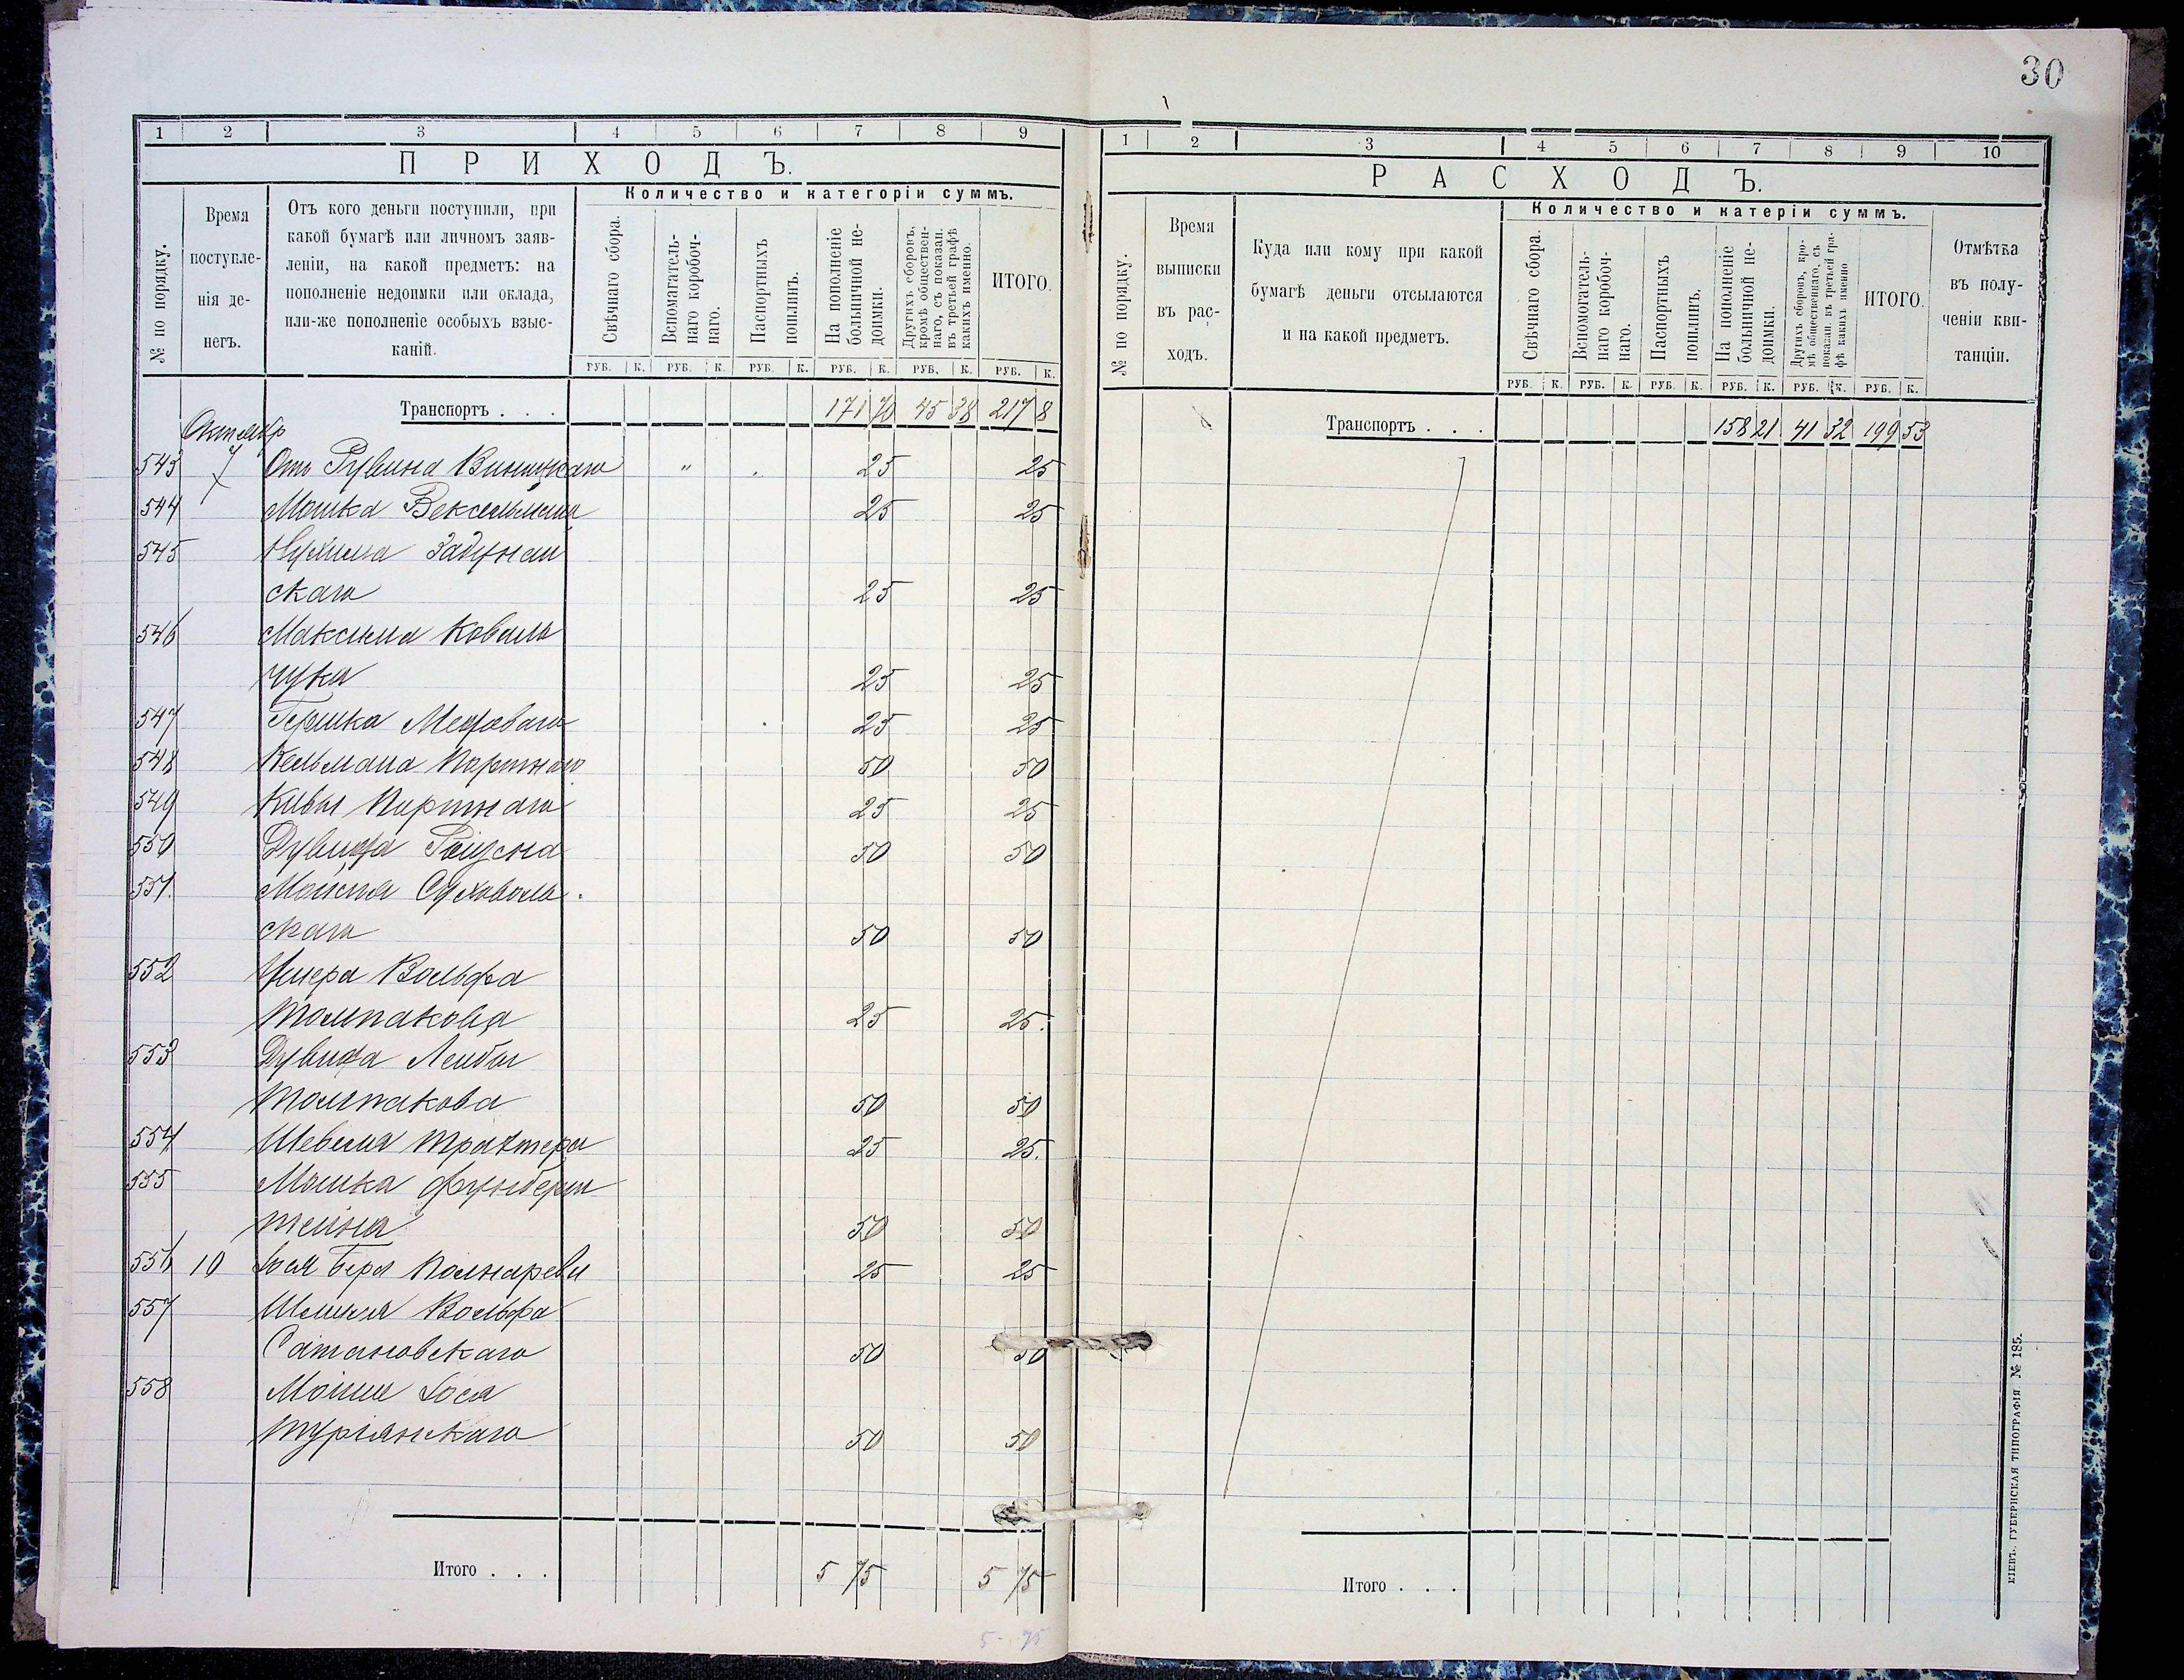 30
1 2 3 4 5 6 7 8 9
ПРИХОДЪ.
№ по порядку.
Время
поступле-
нія де-
негъ.
Отъ кого деньги поступили, при
какой бумагѣ или личномъ заяв-
леніи, на какой предметъ: на
пополненіе недоимки или оклада,
или-же пополненіе особыхъ взыс-
каній.
Количество и категоріи суммъ.
Свѣчнаго сбора.
Вспомагатель-
наго коробоч-
наго.
Паспортныхъ
пошлинъ.
На пополненіе
больничной не-
доимки.
Другихъ сборовъ,
кромѣ обществен-
наго, съ показан.
въ третьей графѣ
какихъ именно.
ИТОГО.
РУБ. К. РУБ. К. РУБ. К. РУБ. К. РУБ. К. РУБ. К.
Транспортъ . . . 171 70 45 38 217 8
Октябр
543 7 Отъ Рувина Виницкаго " 25 25
544 Мошка Вексельмана 25 25
545 Нухима Задунай
скаго 25 25
546 Максима Коваль
чука 25 25
547 Гершка Медоваго 25 25
548 Кельмана Портного 50 50
549 Кивы Портнаго 25 25
550 Дувида 50 50
551. Мошка Суховоль
скаго 50 50
552 Ушера Вольфа
Толпакова 25 25.
553 Дувида Лейбы
Толпакова 50 50
554 Шевеля Трахтера 25 25.
555 Мошка Фунбера
тейна 50 50
556 10 Іося Бера 25 25
557 Шлиомы Вольфа
Сатановскаго 50 50
558 Мойше Іося
Туріянскаго 50 50
Итого . . . 5 75 5 75
5 - 75
1 2 3 4 5 6 7 8 9 10
РАСХОДЪ.
№ по порядку.
Время
выписки
въ рас-
ходъ.
Куда или кому при какой
бумагѣ деньги отсылаются
и на какой предметъ.
Количество и катеріи суммъ.
Свѣчнаго сбора.
Вспомогатель-
наго коробоч-
наго.
Паспортныхъ
пошлинъ.
На пополненіе
больничной не-
доимки.
Другихъ сборовъ, кро-
мѣ общественнаго, съ
показан. въ третьей гра-
фѣ какихъ именно
ИТОГО.
Отмѣтка
въ полу-
ченіи кви-
танціи.
РУБ. К. РУБ. К. РУБ. К. РУБ. К. РУБ. К. РУБ. К.
Транспортъ . . . 158 21 41 32 199 53
Итого . . .
КІЕВЪ. ГУБЕРНСКАЯ ТИПОГРАФІЯ. № 185.